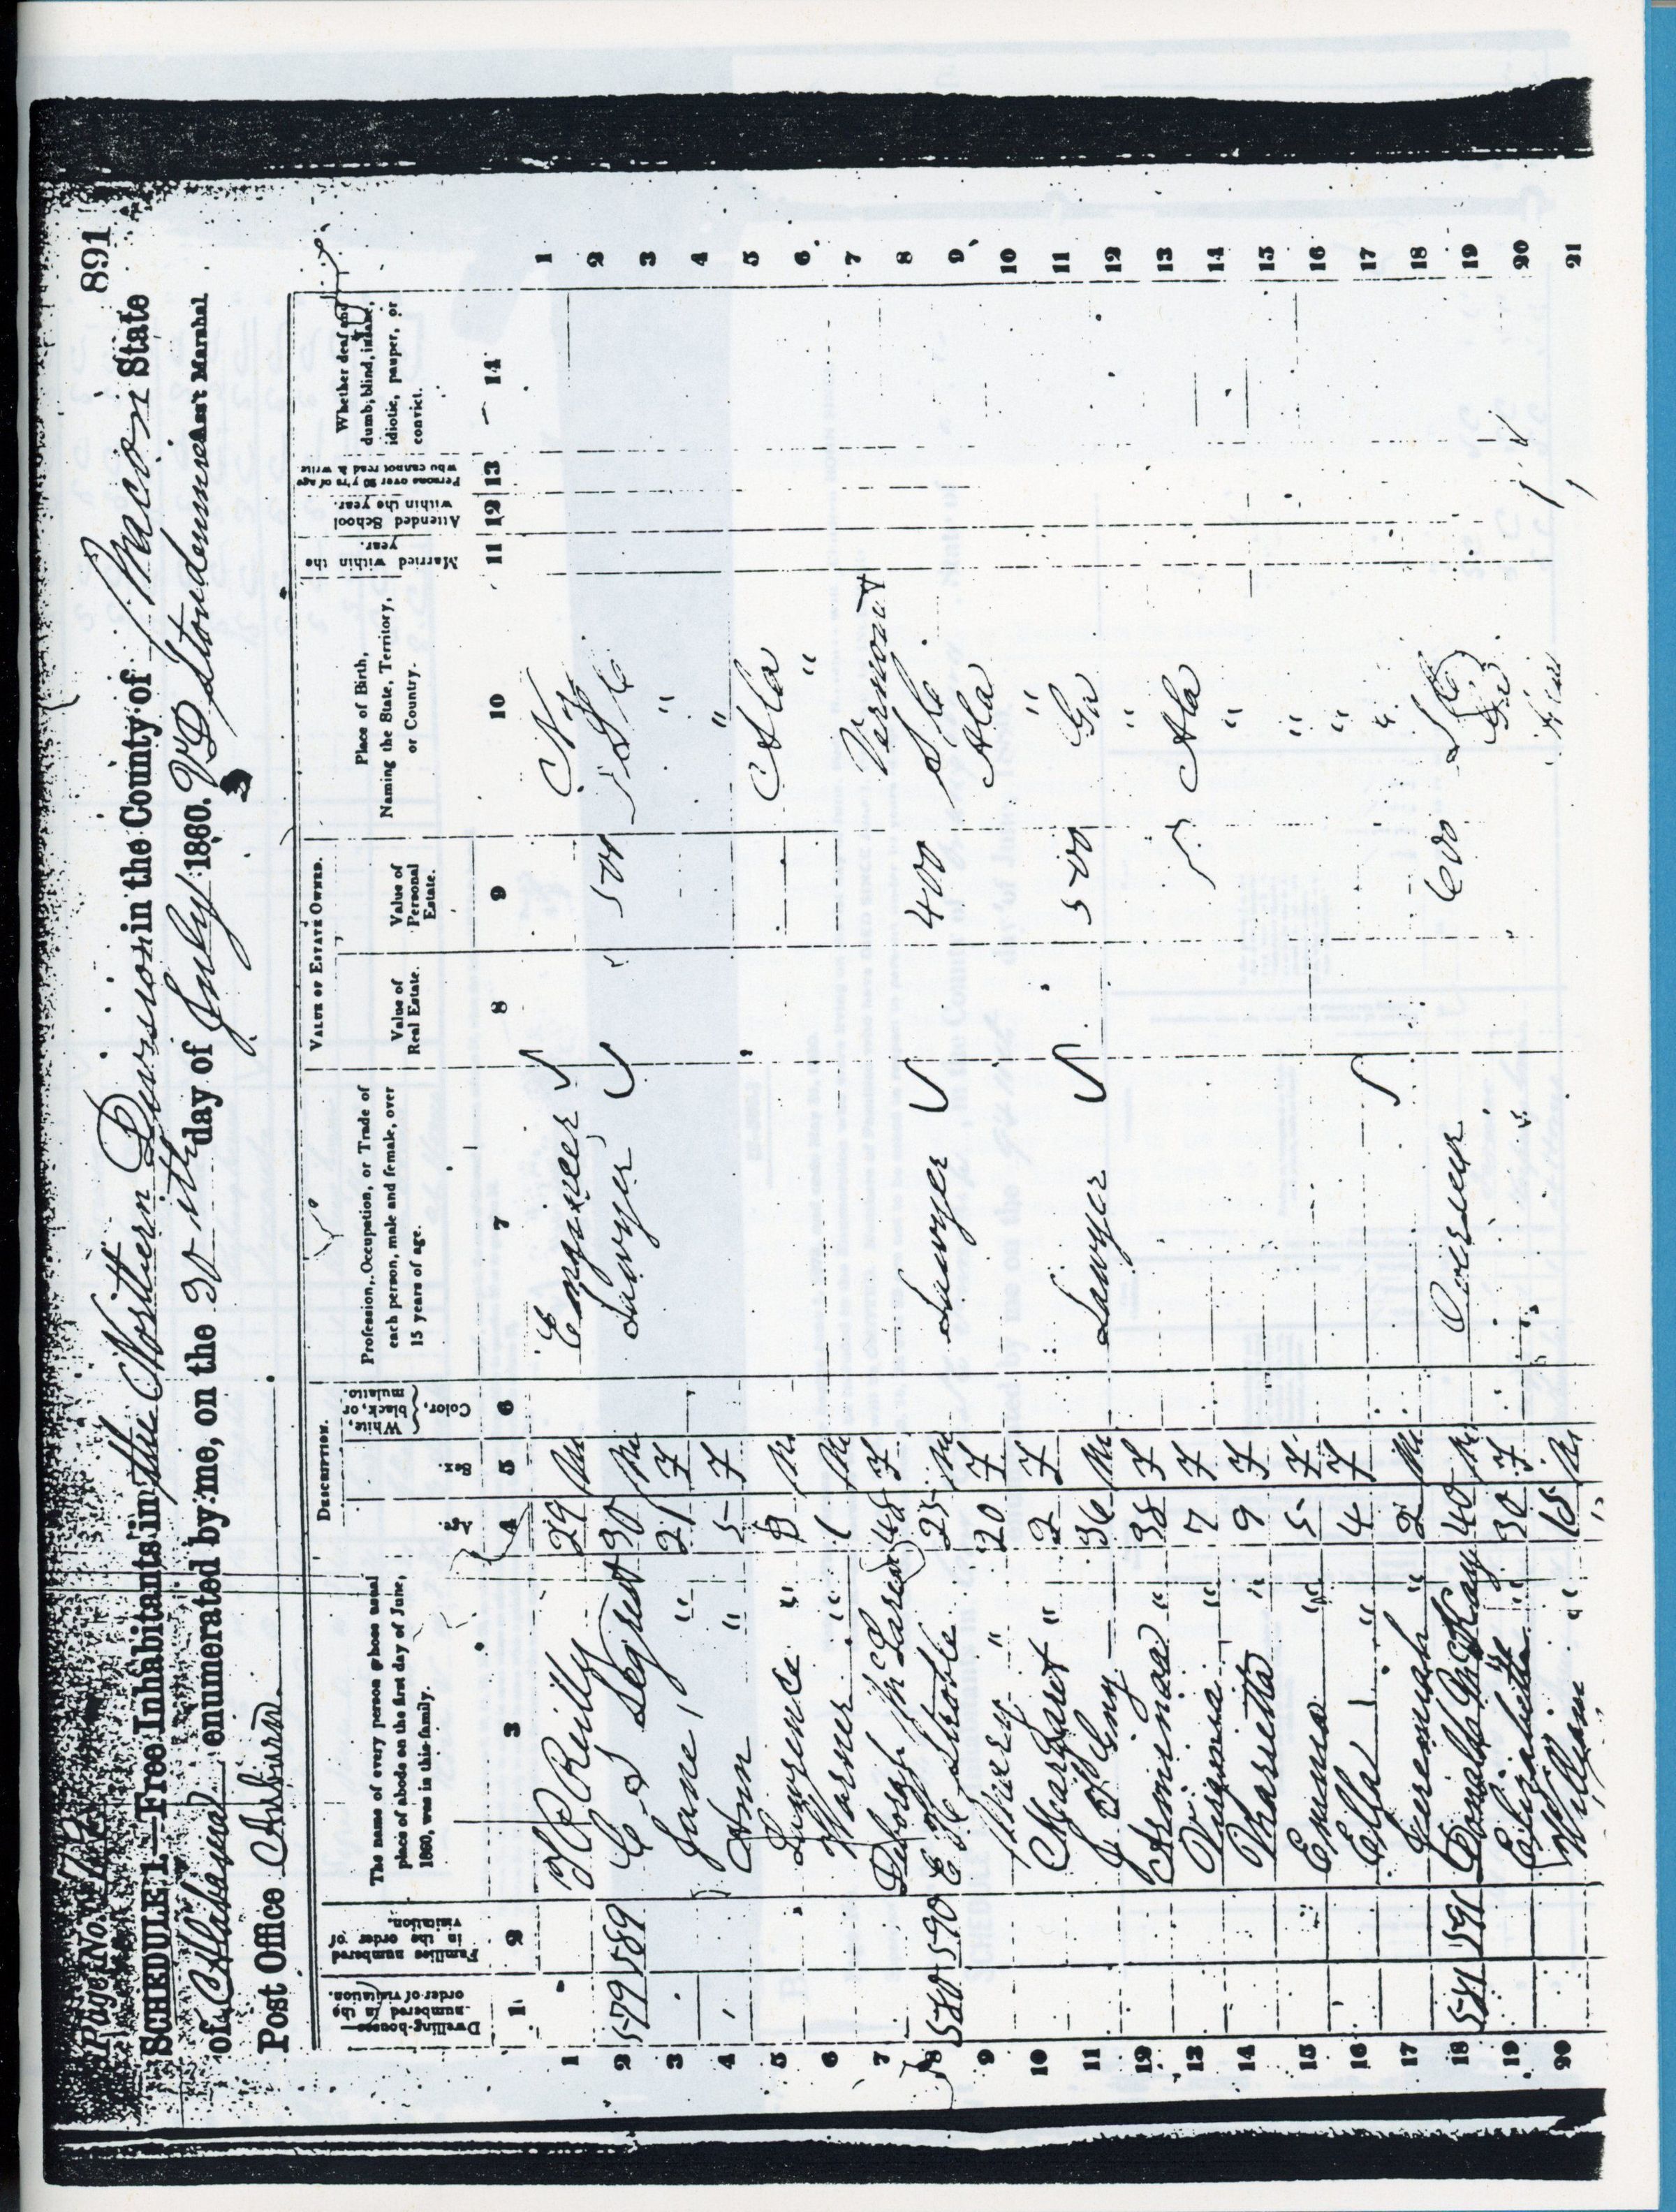 Page No.
891
SCHEDULE 1.—Free Inhabitants in the Northern Division in the County of Macon State
of Alabama enumerated by me, on the 30th day of July 1860. Ass't Marshal
Post Office Auburn
Dwelling-houses—numbered in the order of visitation.
Families numbered in the order of visitation.
The name of every person whose usual place of abode on the first day of June, 1860, was in this family.
DESCRIPTION.
Age.
Sex.
Color, { White, black, or mulatto.
Profession, Occupation, or Trade of each person, male and female, over 15 years of age.
VALUE OF ESTATE OWNED.
Value of Real Estate.
Value of Personal Estate.
Place of Birth, Naming the State, Territory, or Country.
Married within the year.
Attended School within the year.
Persons over 20 y'rs of age who cannot read & write
Whether deaf and dumb, blind, insane, idiotic, pauper, or convict.
1 2 3 4 5 6 7 8 9 10 11 12 13 14
1 Reilly 29 M Engineer N Y 1
2 579 589 Segrest 30 M Sawyer 500 S C 2
3 Jane " 21 F " 3
4 Ann " 5 F " 4
5 Lawrence " M Ala 5
6 Warner " 1 M " 6
7 Deborah McLaren 48 F Vermont 7
8 580 590 E H Stroble 25 M Sawyer 400 S C 8
9 Mary " 20 F Ala 9
10 Margaret " 2 F " 10
11 J B Gny 36 M Sawyer 500 Ga 11
12 Arminda " 38 F " 12
13 Virginia " 7 F Ala 13
14 Marsetta " 9 F " 14
15 Emma " 5 F " 15
16 Ella " 4 F " 16
17 Jeremiah " 2 M " 17
18 581 591 Donald McKay 40 M Overseer 600 S C 18
19 Elizabeth " 30 F 19
20 William " 15 M 20
21